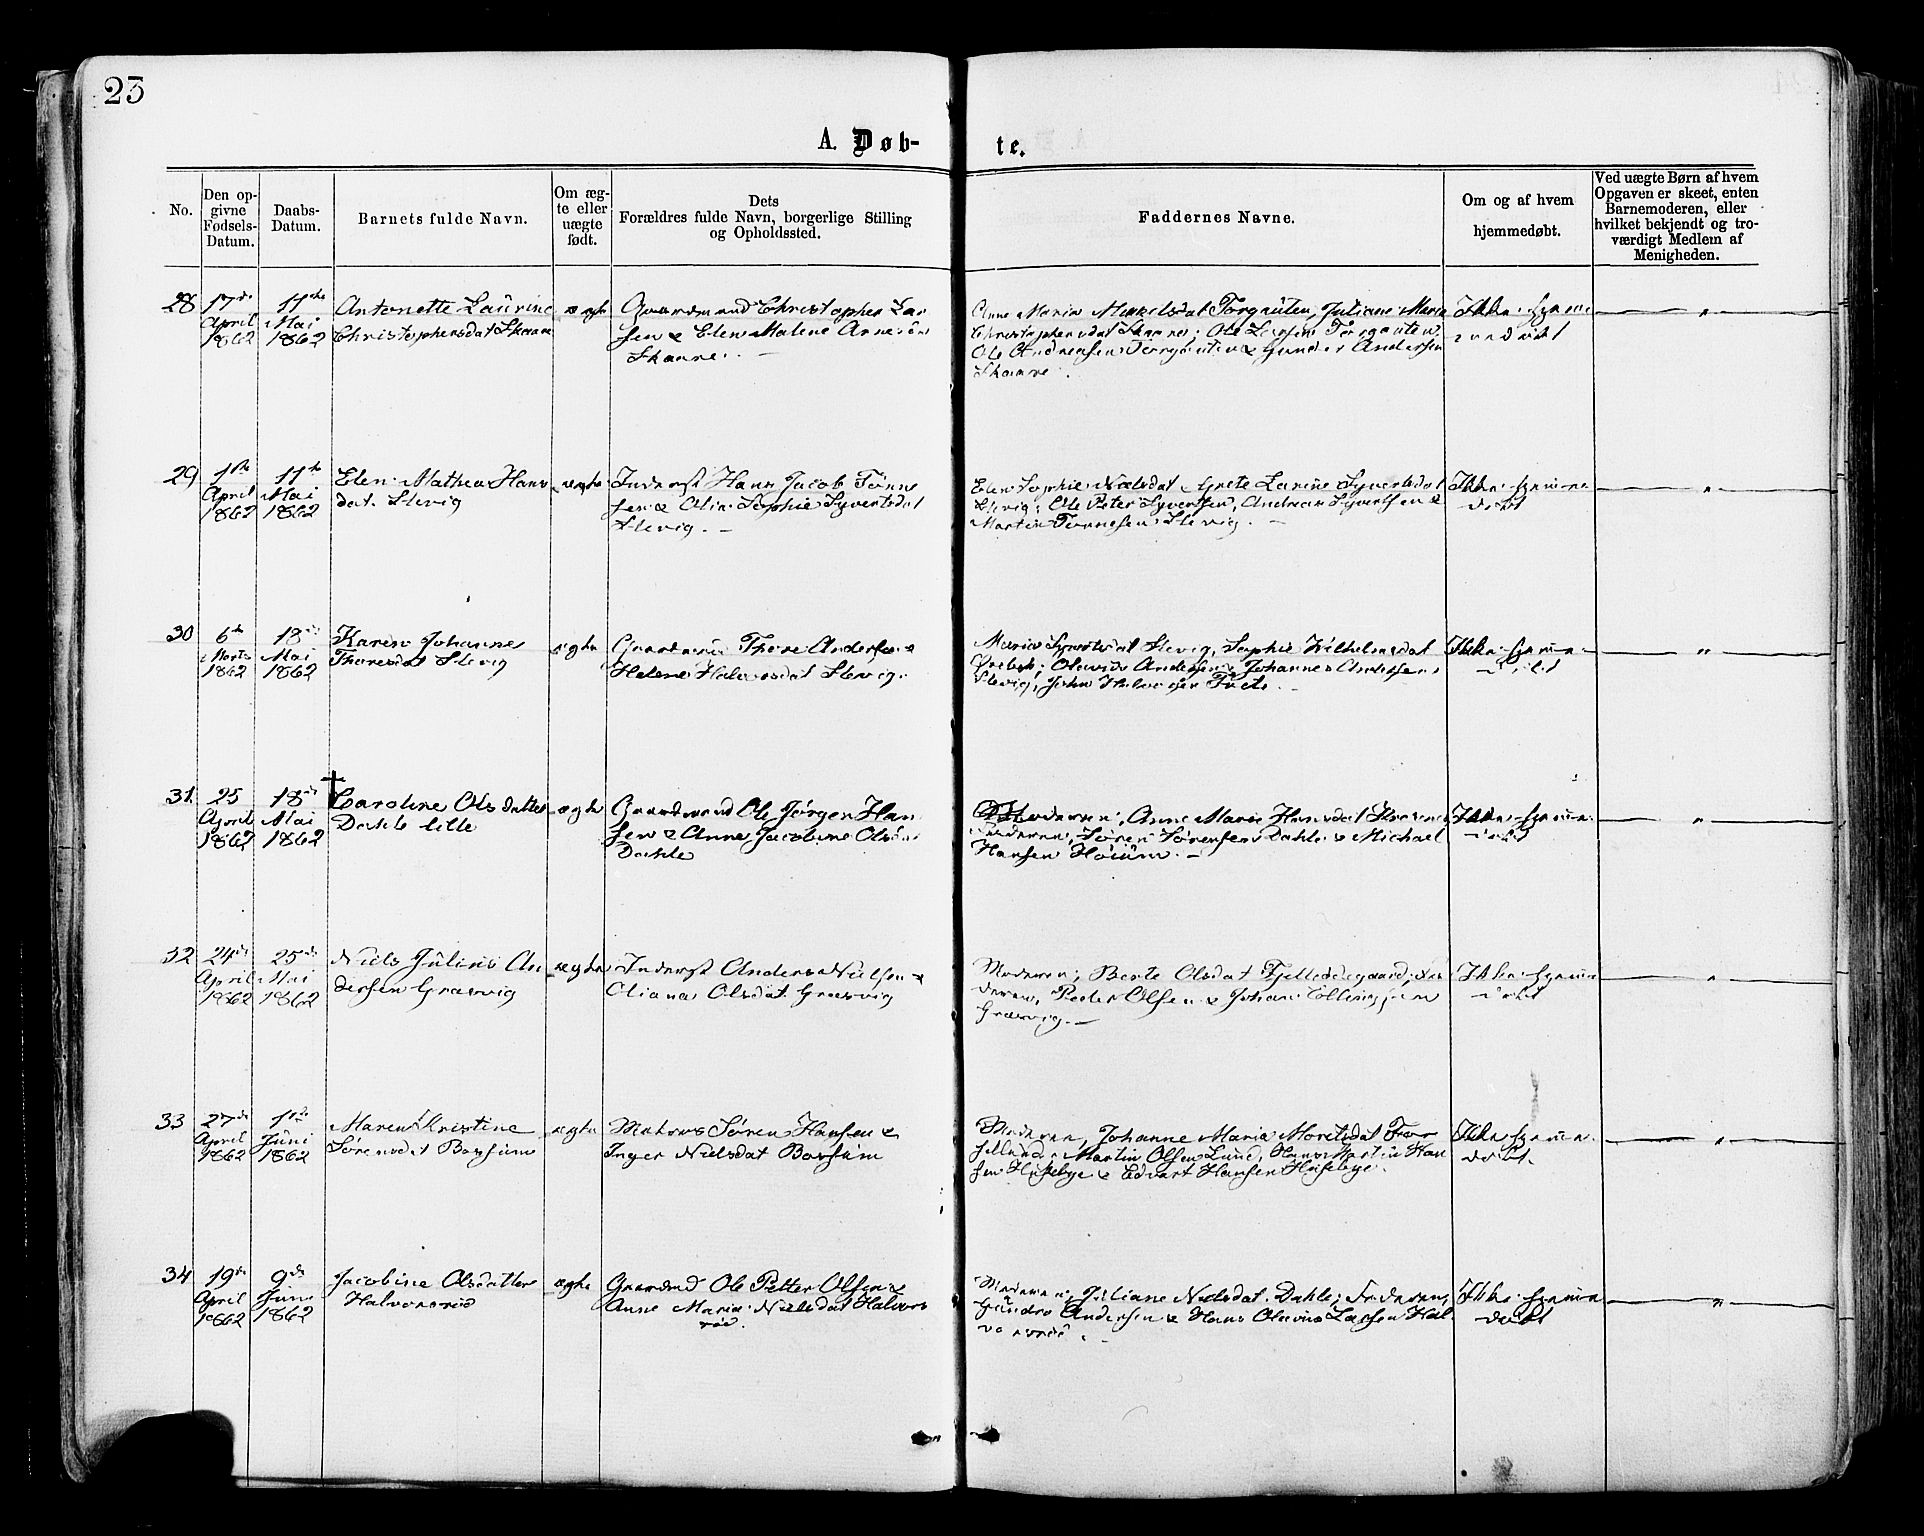 23
A. Døb-
te.
No.
Den op-
givne
Fødsels-
Datum.
Daabs-
Datum.
Barnets fulde Navn.
Om æg-
te eller
uægte
født.
Dets
Forældres fulde Navn, borgerlige Stilling
og Opholdssted.
Faddernes Navne.
Om og af hvem
hjemmedøbt.
Ved uægte Børn af hvem
Opgaven er skeet, enten
Barnemoderen, eller
hvilket bekjendt og tro-
værdigt Medlem af
Menigheden.
28
17de
April
1862
11te
Mai
1862
Antonette Laurine
Christophersdat Skaane
ægte
Gaardmand Christopher Lar
sen & Elen Malene Arnesdr
Skaane. —
Anne Maria Mikkelsdat Torgauten, Juliane Maria
Christophersdat Skaane; Ole Larsen Torgauten
Ole Andreasen Torgauten & Gunder Andersen
Skaane.
Ikke hjem
med
"
29
1ste
April
1862
11te
Mai
1862
Elen Mathea Hans
dat. Slevig
ægte
Inderst Hans Jacob Tønne
sen & Olia Sophie Syvertsdat
Slevig. —
Elen Sophie Nielsdat Grete Larine Syvertsdat
Slevig; Ole Peter Syvertsen, Andreas Syvertsen &
Martin Tønnesen Slevig. —
Ikke hjemme
døbt
"
30
6te
Marts
1862
18de
Mai
1862
Karen Johanne
Thoresdat Slevig
ægte
Thore Andersen &
Helene Halvorsdat Slevig.
Maria Syvertsdat Slevig, Sophie Vilhelmsdat
Andersen & Johannes Andersen
Slevig, John
Ikke hjemme
døbt
"
31.
25
April
1862
18de
Mai
1862
Caroline Olsdatter
Dahle lille
ægte
Gaardmand Ole Jørgen Han
sen & Anne Jacobine Olsdr
Dahle
Moderen, Anne Maria Hansdat
Faderen, Søren Sørensen Dahle & Michael
Hansen Høium. —
Ikke hjemme
døbt
"
32
24de
April
1862
25de
Mai
1862
Niels Julius An
dersen Græsvig
ægte
Inderst Anders Nielsen &
Oliana Olsdat Græsvig
Moderen; Berte Olsdat Fa
deren, Peder Olsen & Johan
Græsvig. —
Ikke hjemme
døbt
"
33
27de
April
1862
1ste
Juni
1862
Maren Kristine
Sørensdat Bossum
ægte
Matros Søren Hansen &
Inger Nielsdat Bossum
Moderen, Johanne Maria Moretsdat
Martin Olsen Lund, Hans Martin Han
sen Husebye & Edvart Hansen Husebye.
Ikke hjemme
døbt.
"
34
19de
April
1862
9de
Juni
1862
Jacobine Olsdatter
Halvorsrød
ægte
Gaardmd Ole Petter Olsen &
Anne Maria Nielsdat Halvors
rød.
Moderen, Juliane Nielsdat. Dahle; Faderen,
Andersen & Hans Olavius Larsen Hal
vorsrød.
Ikke hjemme
døbt
"